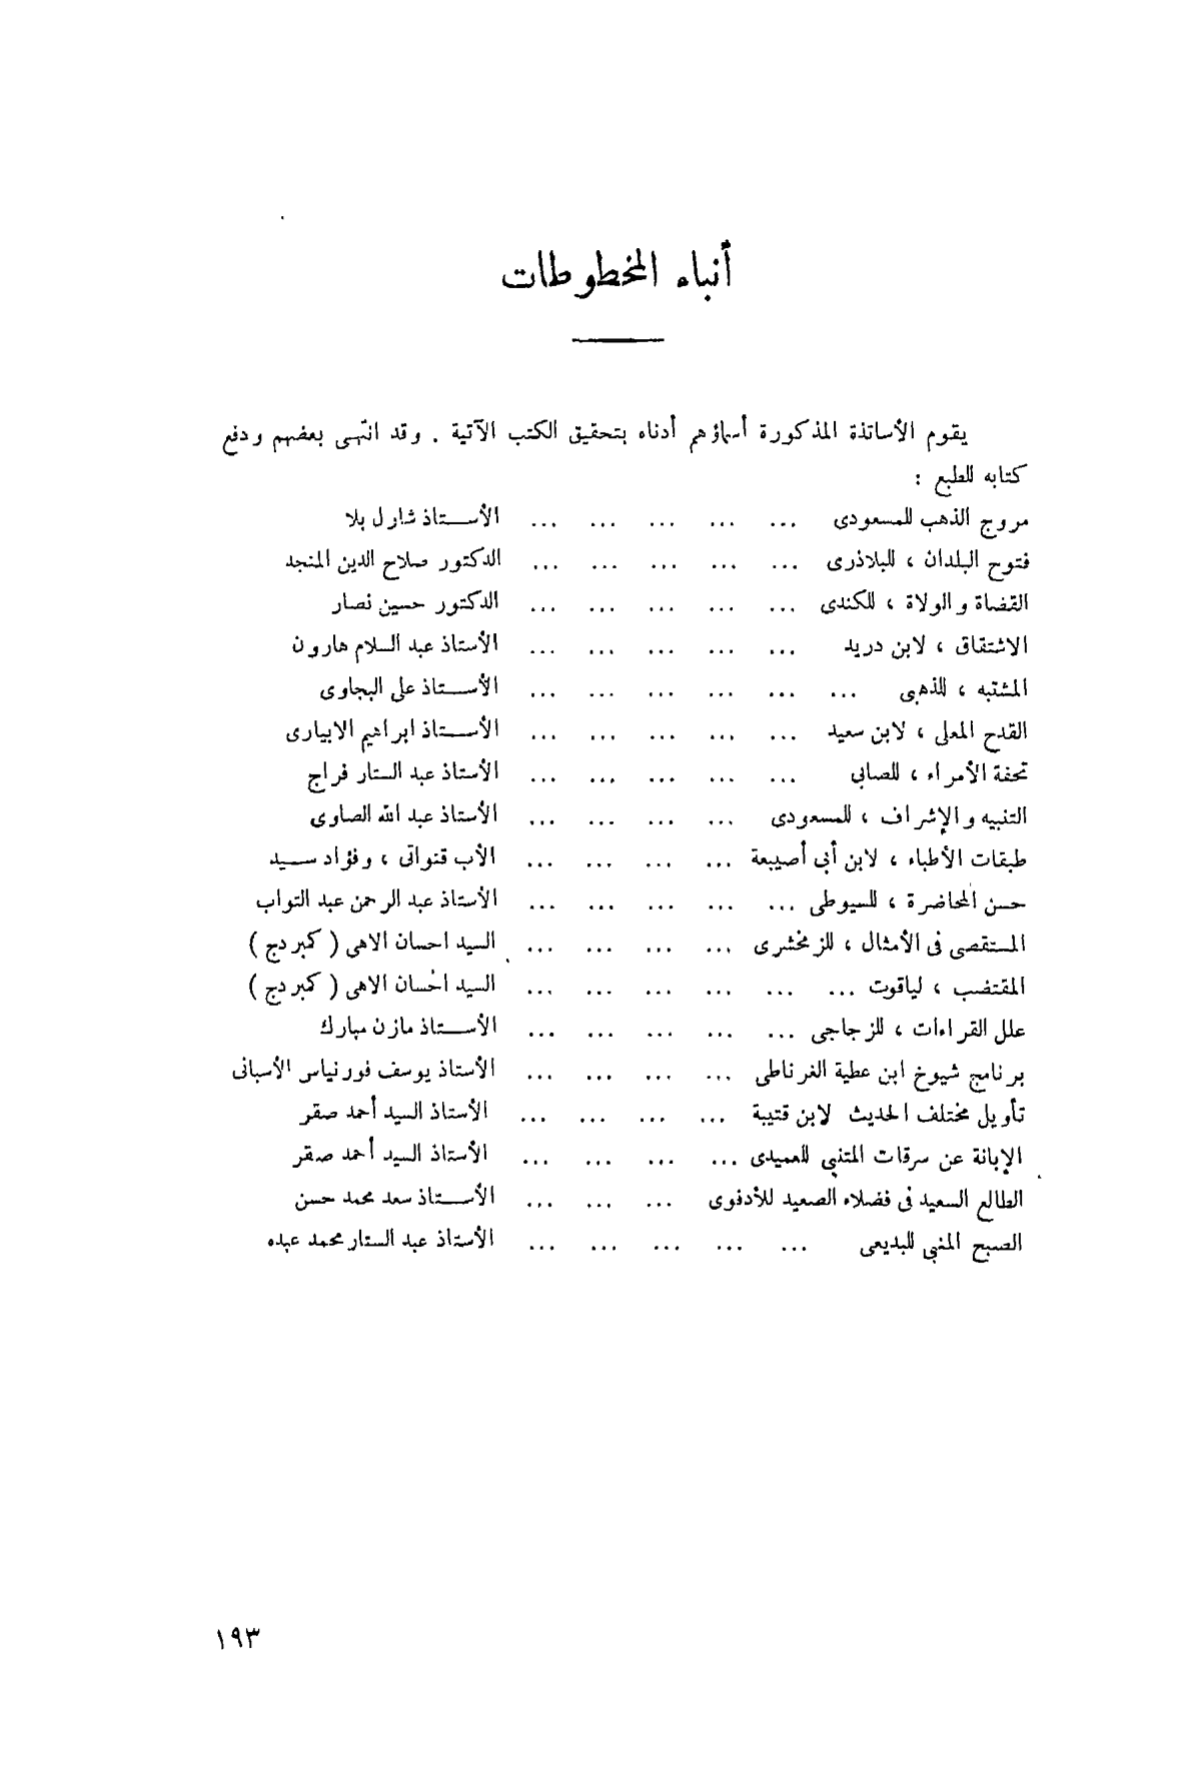 أنباء المخطوطات
يقوم الأساتذة المذكورة أسماؤهم أدناه بتحقيق الكتب الآتية . وقد انتهى بعضهم ودفع
كتابه للطبع :
مروج الذهب للمسعودى ... ... ... ... ... الأســتاذ شارل بلا
فتوح البلدان ، للبلاذرى ... ... ... ... ... الدكتور صلاح الدين المنجد
القضاة والولاة ، للكندى ... ... ... ... ... الدكتور حسين نصار
الاشتقاق ، لابن دريد ... ... ... ... ... الأستاذ عبد السلام هارون
المشتبه ، للذهبى ... ... ... ... ... ... الأســتاذ على البجاوى
القدح المعلى ، لابن سعيد ... ... ... ... ... الأســتاذ ابراهيم الابيارى
تحفة الأمراء ، للصابى ... ... ... ... ... الأستاذ عبد الستار فراج
التنبيه والإشراف ، للمسعودى ... ... ... ... الأستاذ عبد الله الصاوى
طبقات الأطباء ، لابن أبى أصيبعة ... ... ... ... الأب قنواتى ، وفؤاد ســيد
حسن المحاضرة ، للسيوطى ... ... ... ... ... الأستاذ عبد الرحمن عبد التواب
المستقصى فى الأمثال ، للزمخشرى ... ... ... ... السيد احسان الاهى ( كمبردج )
المقتضب ، لياقوت ... ... ... ... ... ... السيد احسان الاهى ( كمبردج )
علل القراءات ، للزجاجى ... ... ... ... ... الأســتاذ مازن مبارك
برنامج شيوخ ابن عطية الغرناطى ... ... ... ... الأستاذ يوسف فورنياس الأسبانى
تأويل مختلف الحديث لابن قتيبة ... ... ... ... الأستاذ السيد أحمد صقر
الإبانة عن سرقات المتنبى للعميدى ... ... ... ... الأستاذ السيد أحمد صقر
الطالع السعيد فى فضلاء الصعيد للأدفوى ... ... ... الأســتاذ سعد محمد حسن
الصبح المنبى للبديعى ... ... ... ... ... الأستاذ عبد الستار محمد عبده
١٩٣